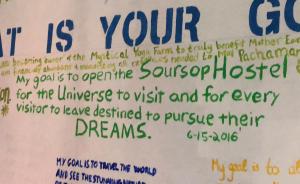 AT IS YOUR GO
becoming owner of the Mystical Yoga Farm to truly benefit Mother Ear
financial abundance & needed to Pacham
My goal is to open the Soursop Hostel
for the Universe to visit and for every
visitor to leave destined to pursue their
DREAMS. 6-15-2016
MY GOAL IS TO TRAVEL THE WORLD
AND SEE THE STUNNING NATURE
My goal is to d